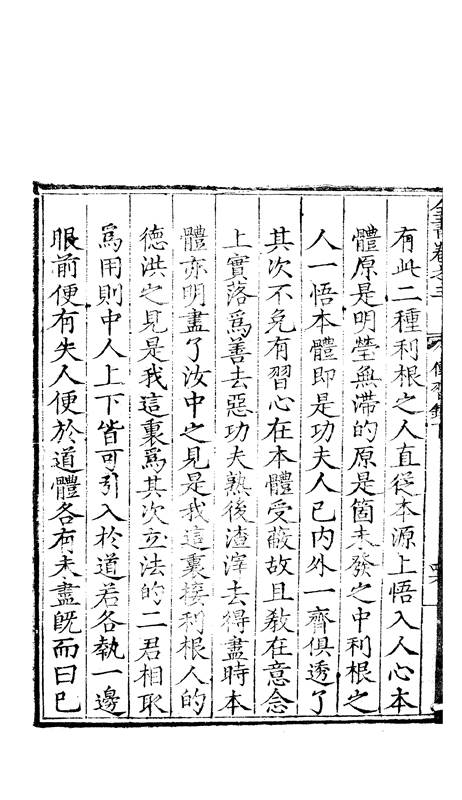 全書卷之三
傳習錄下
有此二種利根之人直從本源上悟入人心本
體原是明瑩無滯的原是箇未發之中利根之
人一悟本體即是功夫人已內外一齊俱透了
其次不免有習心在本體受蔽故且敎在意念
上實落爲善去惡功夫熟後渣滓去得盡時本
體亦明盡了汝中之見是我這裏接利根人的
德洪之見是我這裏爲其次立法的二君相取
爲用則中人上下皆可引入於道若各執一邊
眼前便有失人便於道體各有未盡旣而曰已